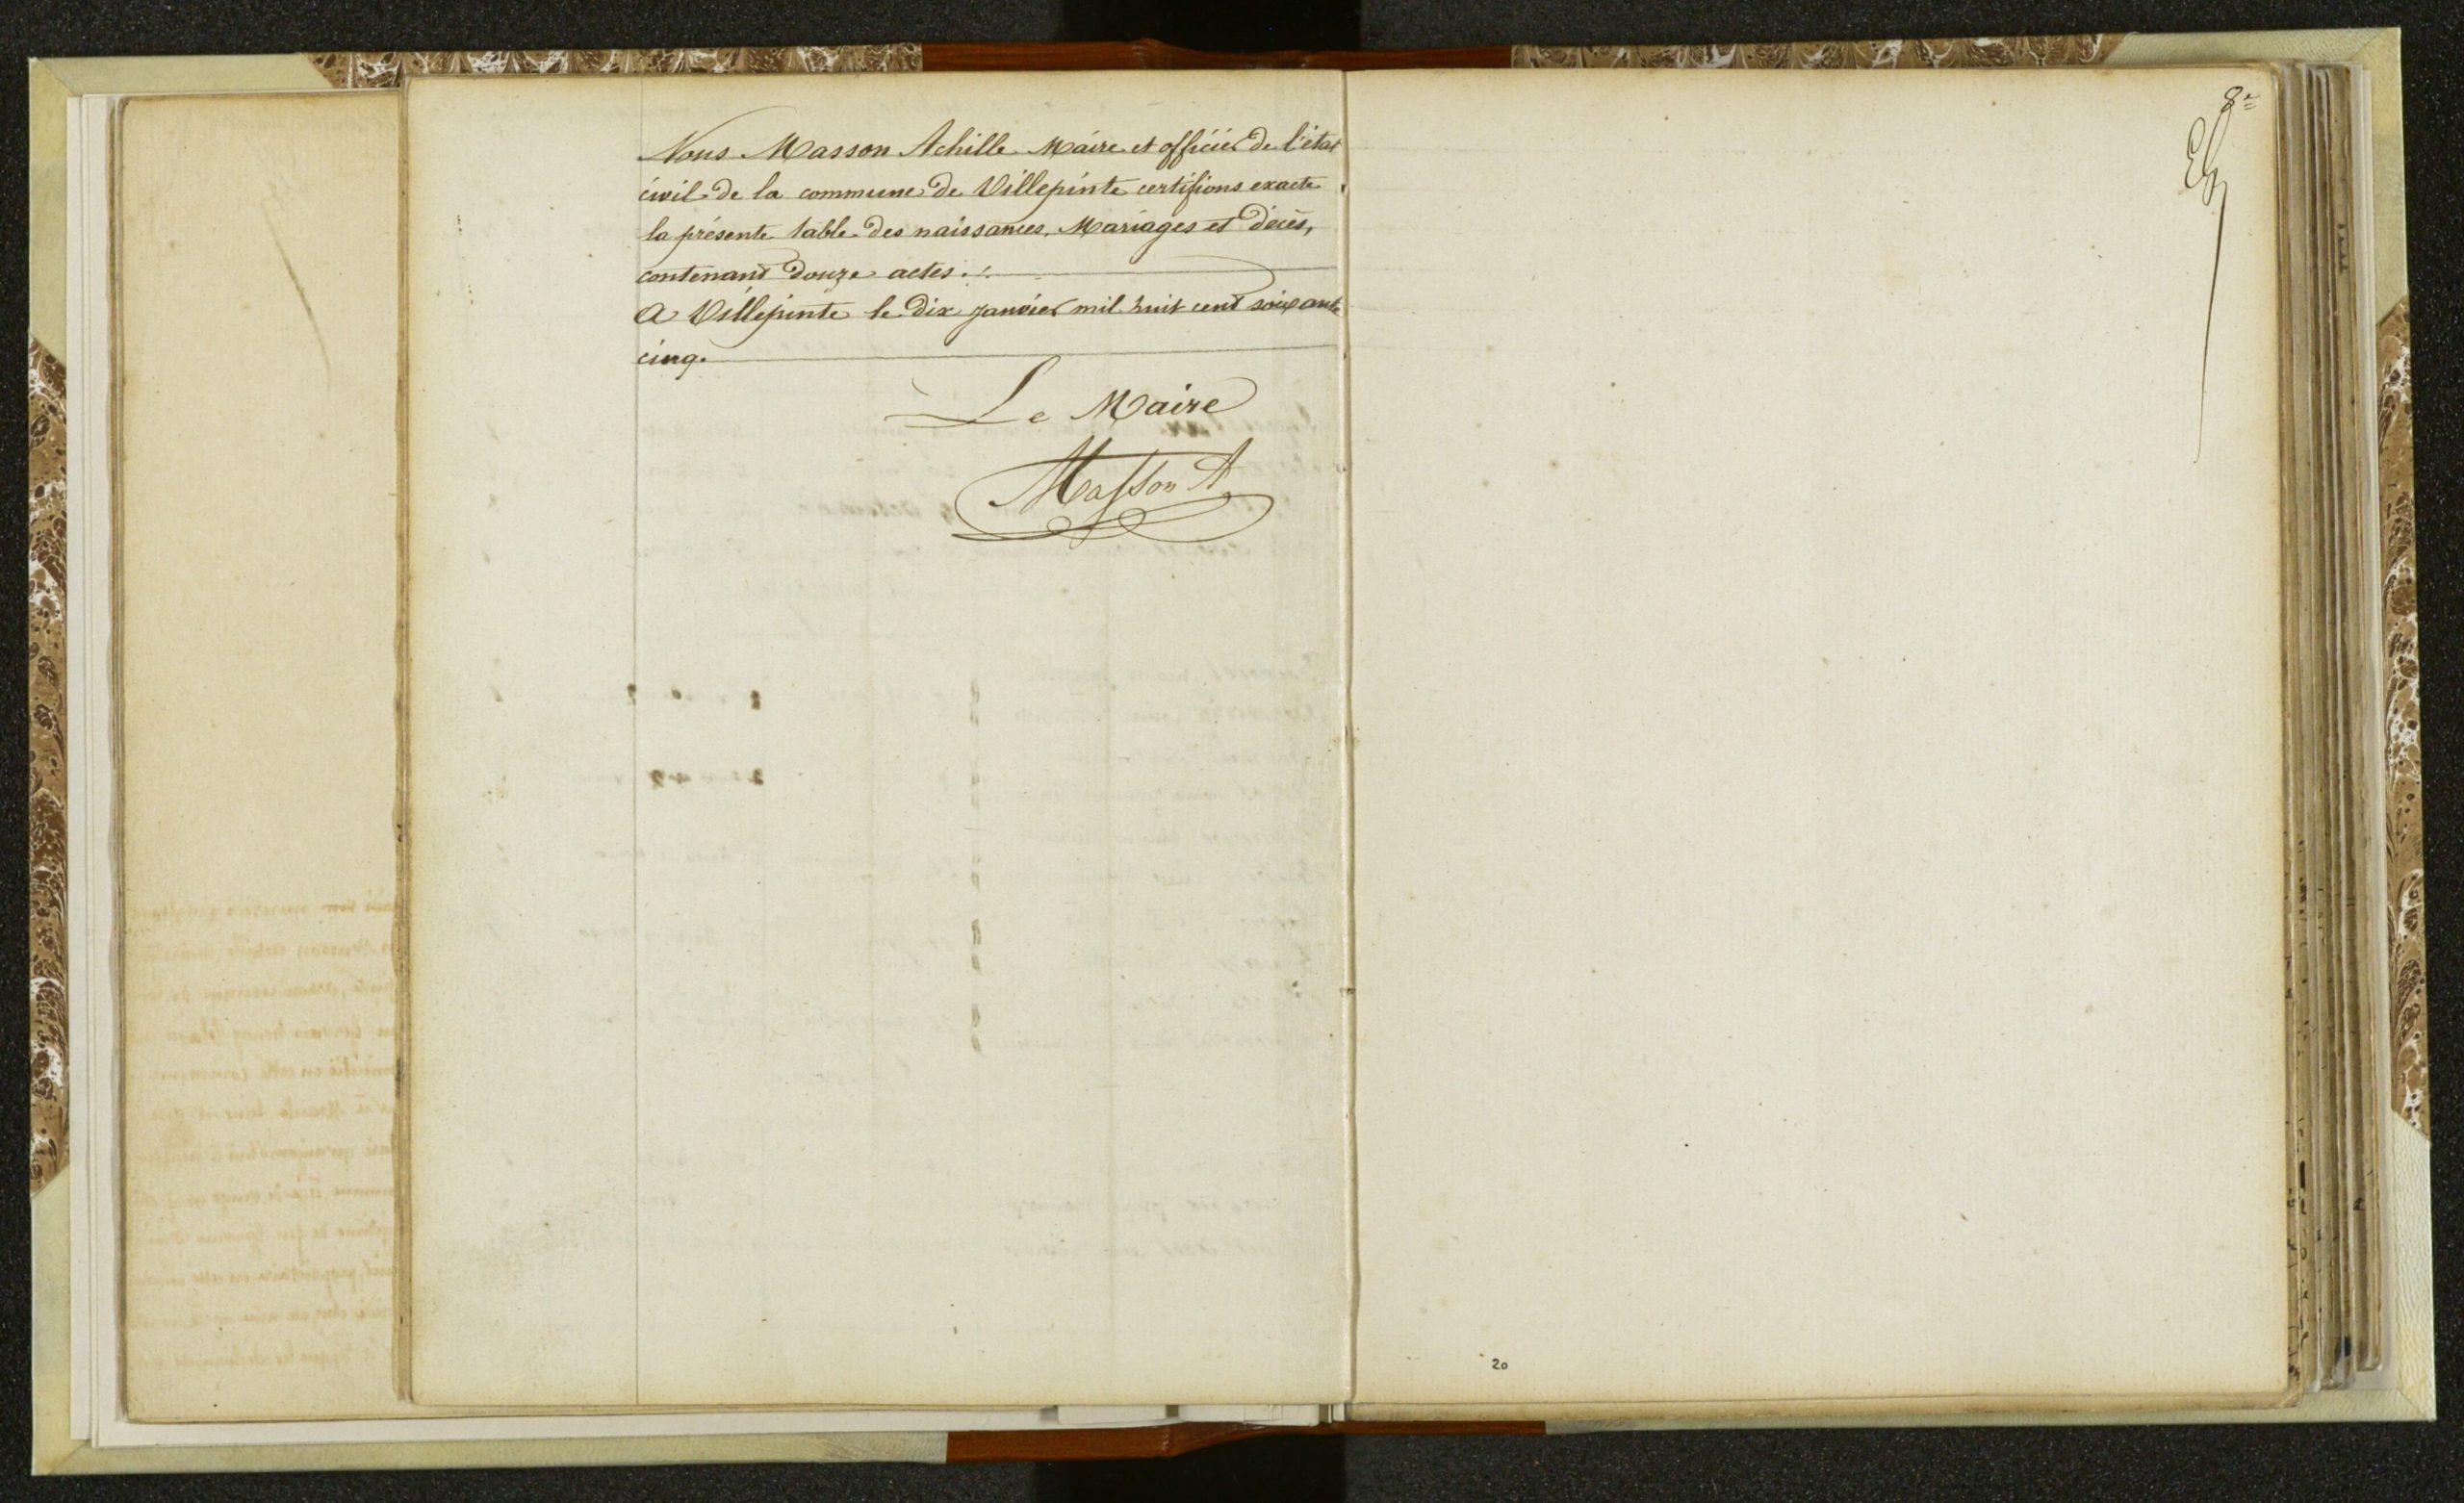 Nous Masson Achille Maire et officier de l'état
civil de la commune de Villepinte certifions exacte
la présente table des naissances, Mariages et décès,
contenant douze actes ./.
A Villepinte le dix janvier mil huit cent soixante
cinq.
Le Maire
Masson A
8e
20